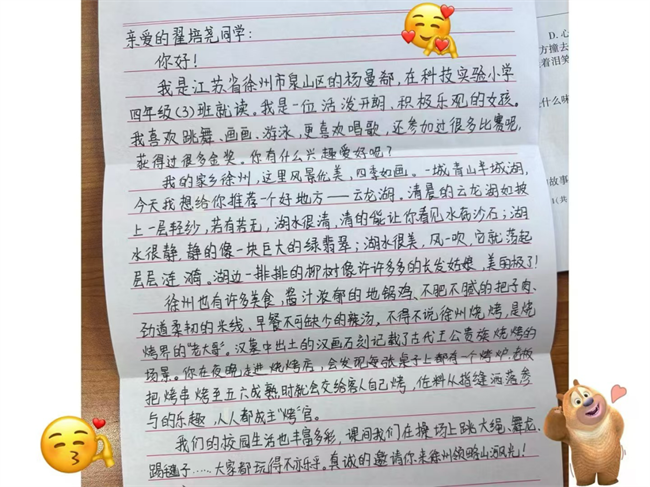 亲爱的翟培尧同学:
你好!
我是江苏省徐州市泉山区的杨曼郗,在科技实验小学
四年级(3)班就读。我是一位活泼开朗,积极乐观的女孩。
我喜欢跳舞、画画、游泳,更喜欢唱歌,还参加过很多比赛呢,
获得过很多金奖。你有什么兴趣爱好呢?
我的家乡徐州,这里风景优美,四季如画。一城青山半城湖,
今天我想给你推荐一个好地方——云龙湖。清晨的云龙湖如披
上一层轻纱,若有若无,湖水很清,清的能让你看见水底沙石;湖
水很静,静的像一块巨大的绿翡翠;湖水很美,风一吹,它就荡起
层层涟漪。湖边一排排的柳树像许许多多的长发姑娘,美的极了!
徐州也有许多美食,酱汁浓郁的地锅鸡、不肥不腻的把子肉、
劲道柔韧的米线、早餐不可缺少的辣汤,不得不说徐州烧烤,是烧
烤界的"老大哥"。汉墓中出土的汉画石刻记载了古代王公贵族烧烤的
场景。你在夜晚走进烧烤店,会发现每张桌子上都有一个烤炉,
把烤串烤至五六成熟时就会交给客人自己烤,佐料从指缝洒落参
与的乐趣,人人都成主"烤"官。
我们的校园生活也丰富多彩,课间我们在操场上跳大绳、舞龙、
踢毽子……大家都玩得不亦乐乎。真诚的邀请你来徐州领略山湖风光!
D.心
方撞去
着泪笑
什么味
故事
(共